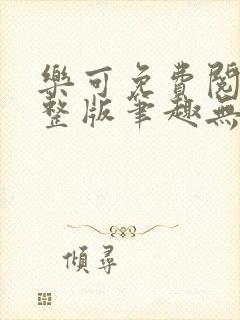 樂可免費閱
整版筆趣無
傾尋